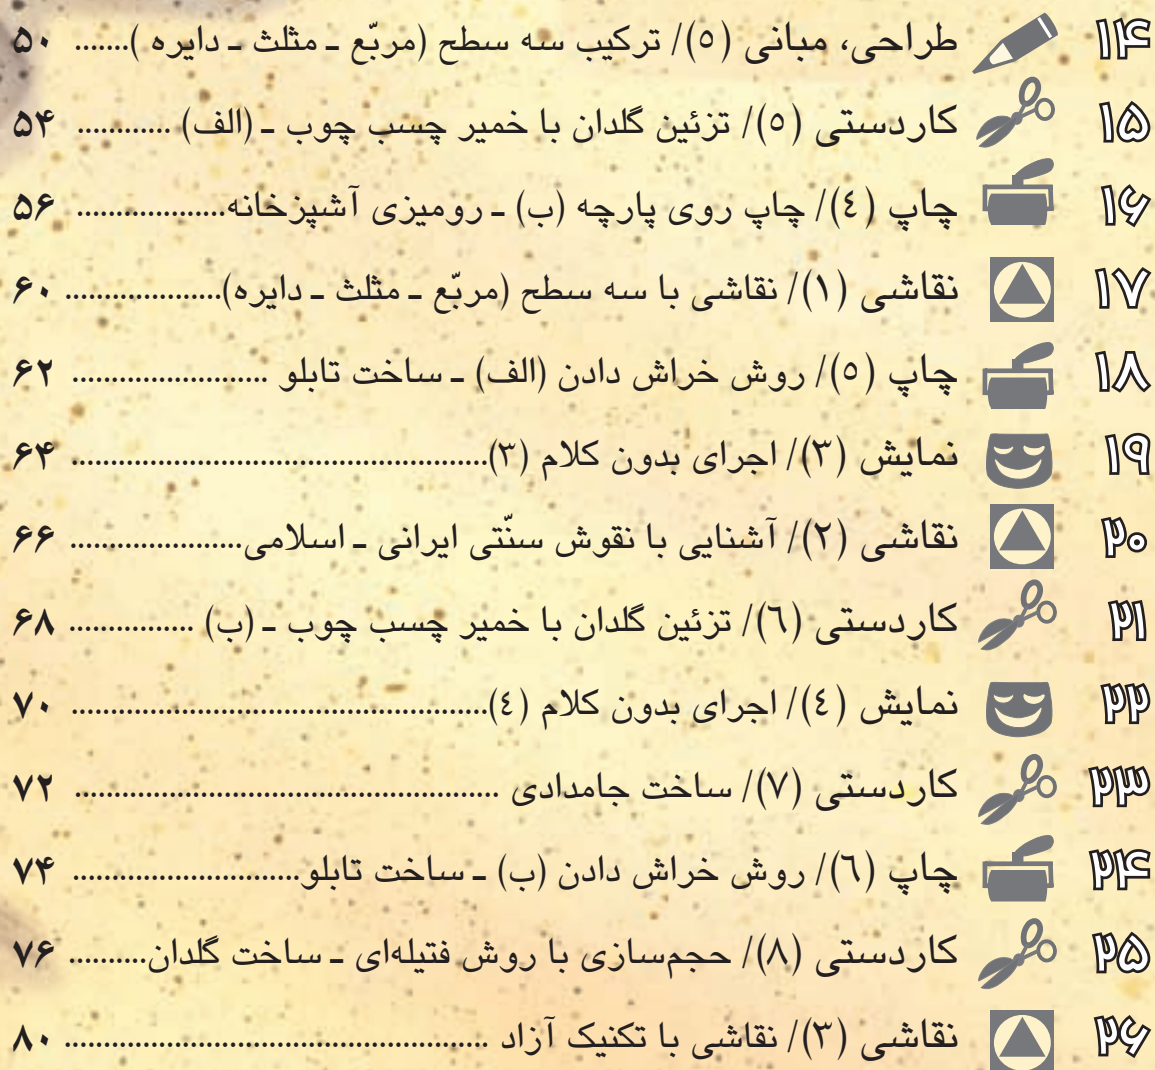 ۱۴ طراحی، مبانی (٥)/ ترکیب سه سطح (مربّع ـ مثلث ـ دایره )....... ۵۰
۱۵ کاردستی (٥)/ تزئین گلدان با خمیر چسب چوب ـ (الف) ............ ۵۴
۱۶ چاپ (٤)/ چاپ روی پارچه (ب) ـ رومیزی آشپزخانه................... ۵۶
۱۷ نقاشی (۱)/ نقاشی با سه سطح (مربّع ـ مثلث ـ دایره).................... ۶۰
۱۸ چاپ (٥)/ روش خراش دادن (الف) ـ ساخت تابلو ......................... ۶۲
۱۹ نمایش (۳)/ اجرای بدون کلام (۳)..................................................... ۶۴
۲۰ نقاشی (۲)/ آشنایی با نقوش سنّتی ایرانی ـ اسلامی...................... ۶۶
۲۱ کاردستی (٦)/ تزئین گلدان با خمیر چسب چوب ـ (ب) ................ ۶۸
۲۲ نمایش (٤)/ اجرای بدون کلام (٤)..................................................... ۷۰
۲۳ کاردستی (۷)/ ساخت جامدادی ...................................................... ۷۲
۲۴ چاپ (٦)/ روش خراش دادن (ب) ـ ساخت تابلو............................. ۷۴
۲۵ کاردستی (۸)/ حجم‌سازی با روش فتیله‌ای ـ ساخت گلدان.......... ۷۶
۲۶ نقاشی (۳)/ نقاشی با تکنیک آزاد ...................................................... ۸۰